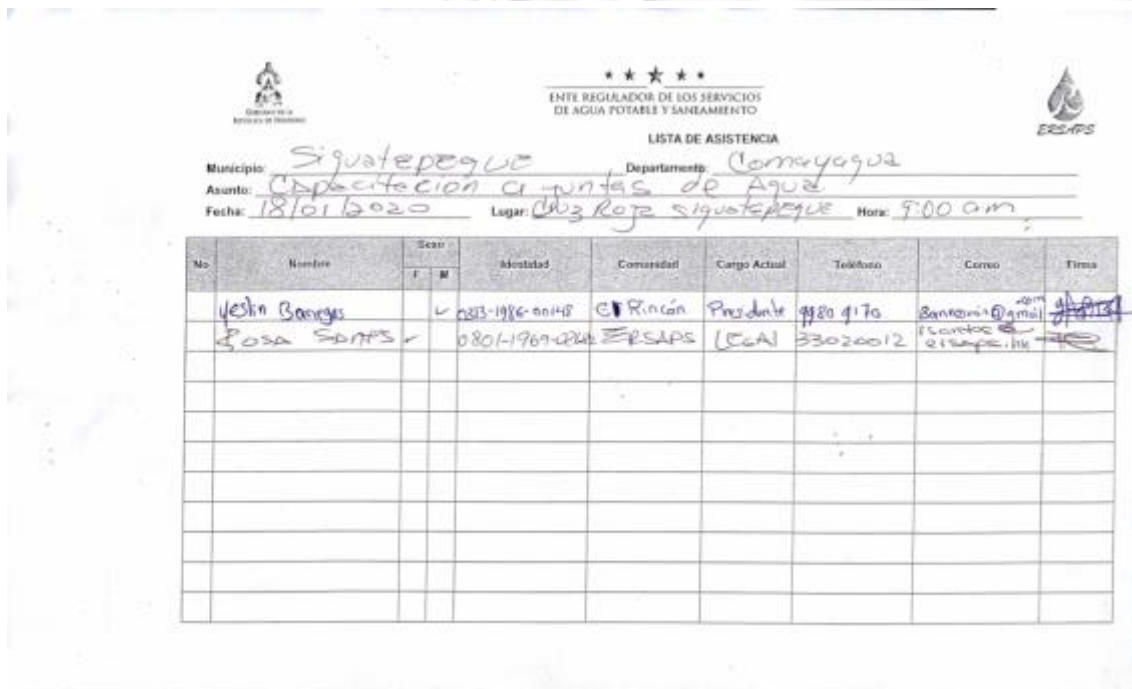 GOBIERNO DE LA
REPÚBLICA DE HONDURAS
ENTE REGULADOR DE LOS SERVICIOS
DE AGUA POTABLE Y SANEAMIENTO
ERSAPS
LISTA DE ASISTENCIA
Municipio: Siguatepeque Departamento: Comayagua
Asunto: Capacitacion a juntas de Agua
Fecha: 18/01/2020 Lugar: Cruz Roja Siguatepeque Hora: 9:00 am
No Nombre Sexo F M Identidad Comunidad Cargo Actual Teléfono Correo Firma
Yeslin Banegas ✓ El Rincón Presidente 9980 9170 @gmail .com
Rosa ✓ ERSAPS LEGAL 33020012 ersaps.hn